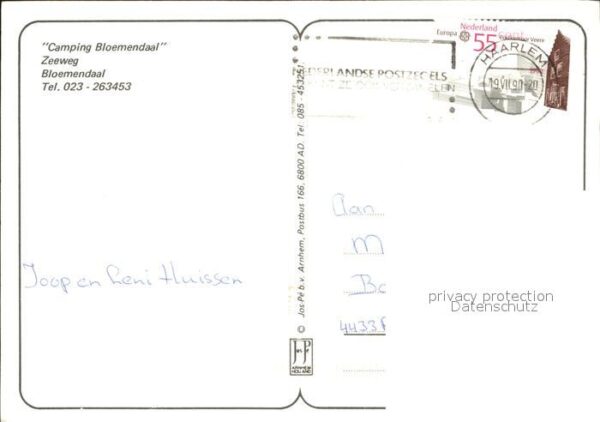 "Camping Bloemendaal"
Zeeweg
Bloemendaal
Tel. 023 - 263453
Joop en Leni Huissen
© Jos Pé b.v. Arnhem, Postbus 166, 6800 AD. Tel. 085 - 453251.
JosPé
ARNHEM
HOLLAND
Nederland
Europa
55
Veere
HAARLEM
19.VII.90.-20
NEDERLANDSE POSTZEGELS
Aan
M
Bo
4433
privacy protection
Datenschutz